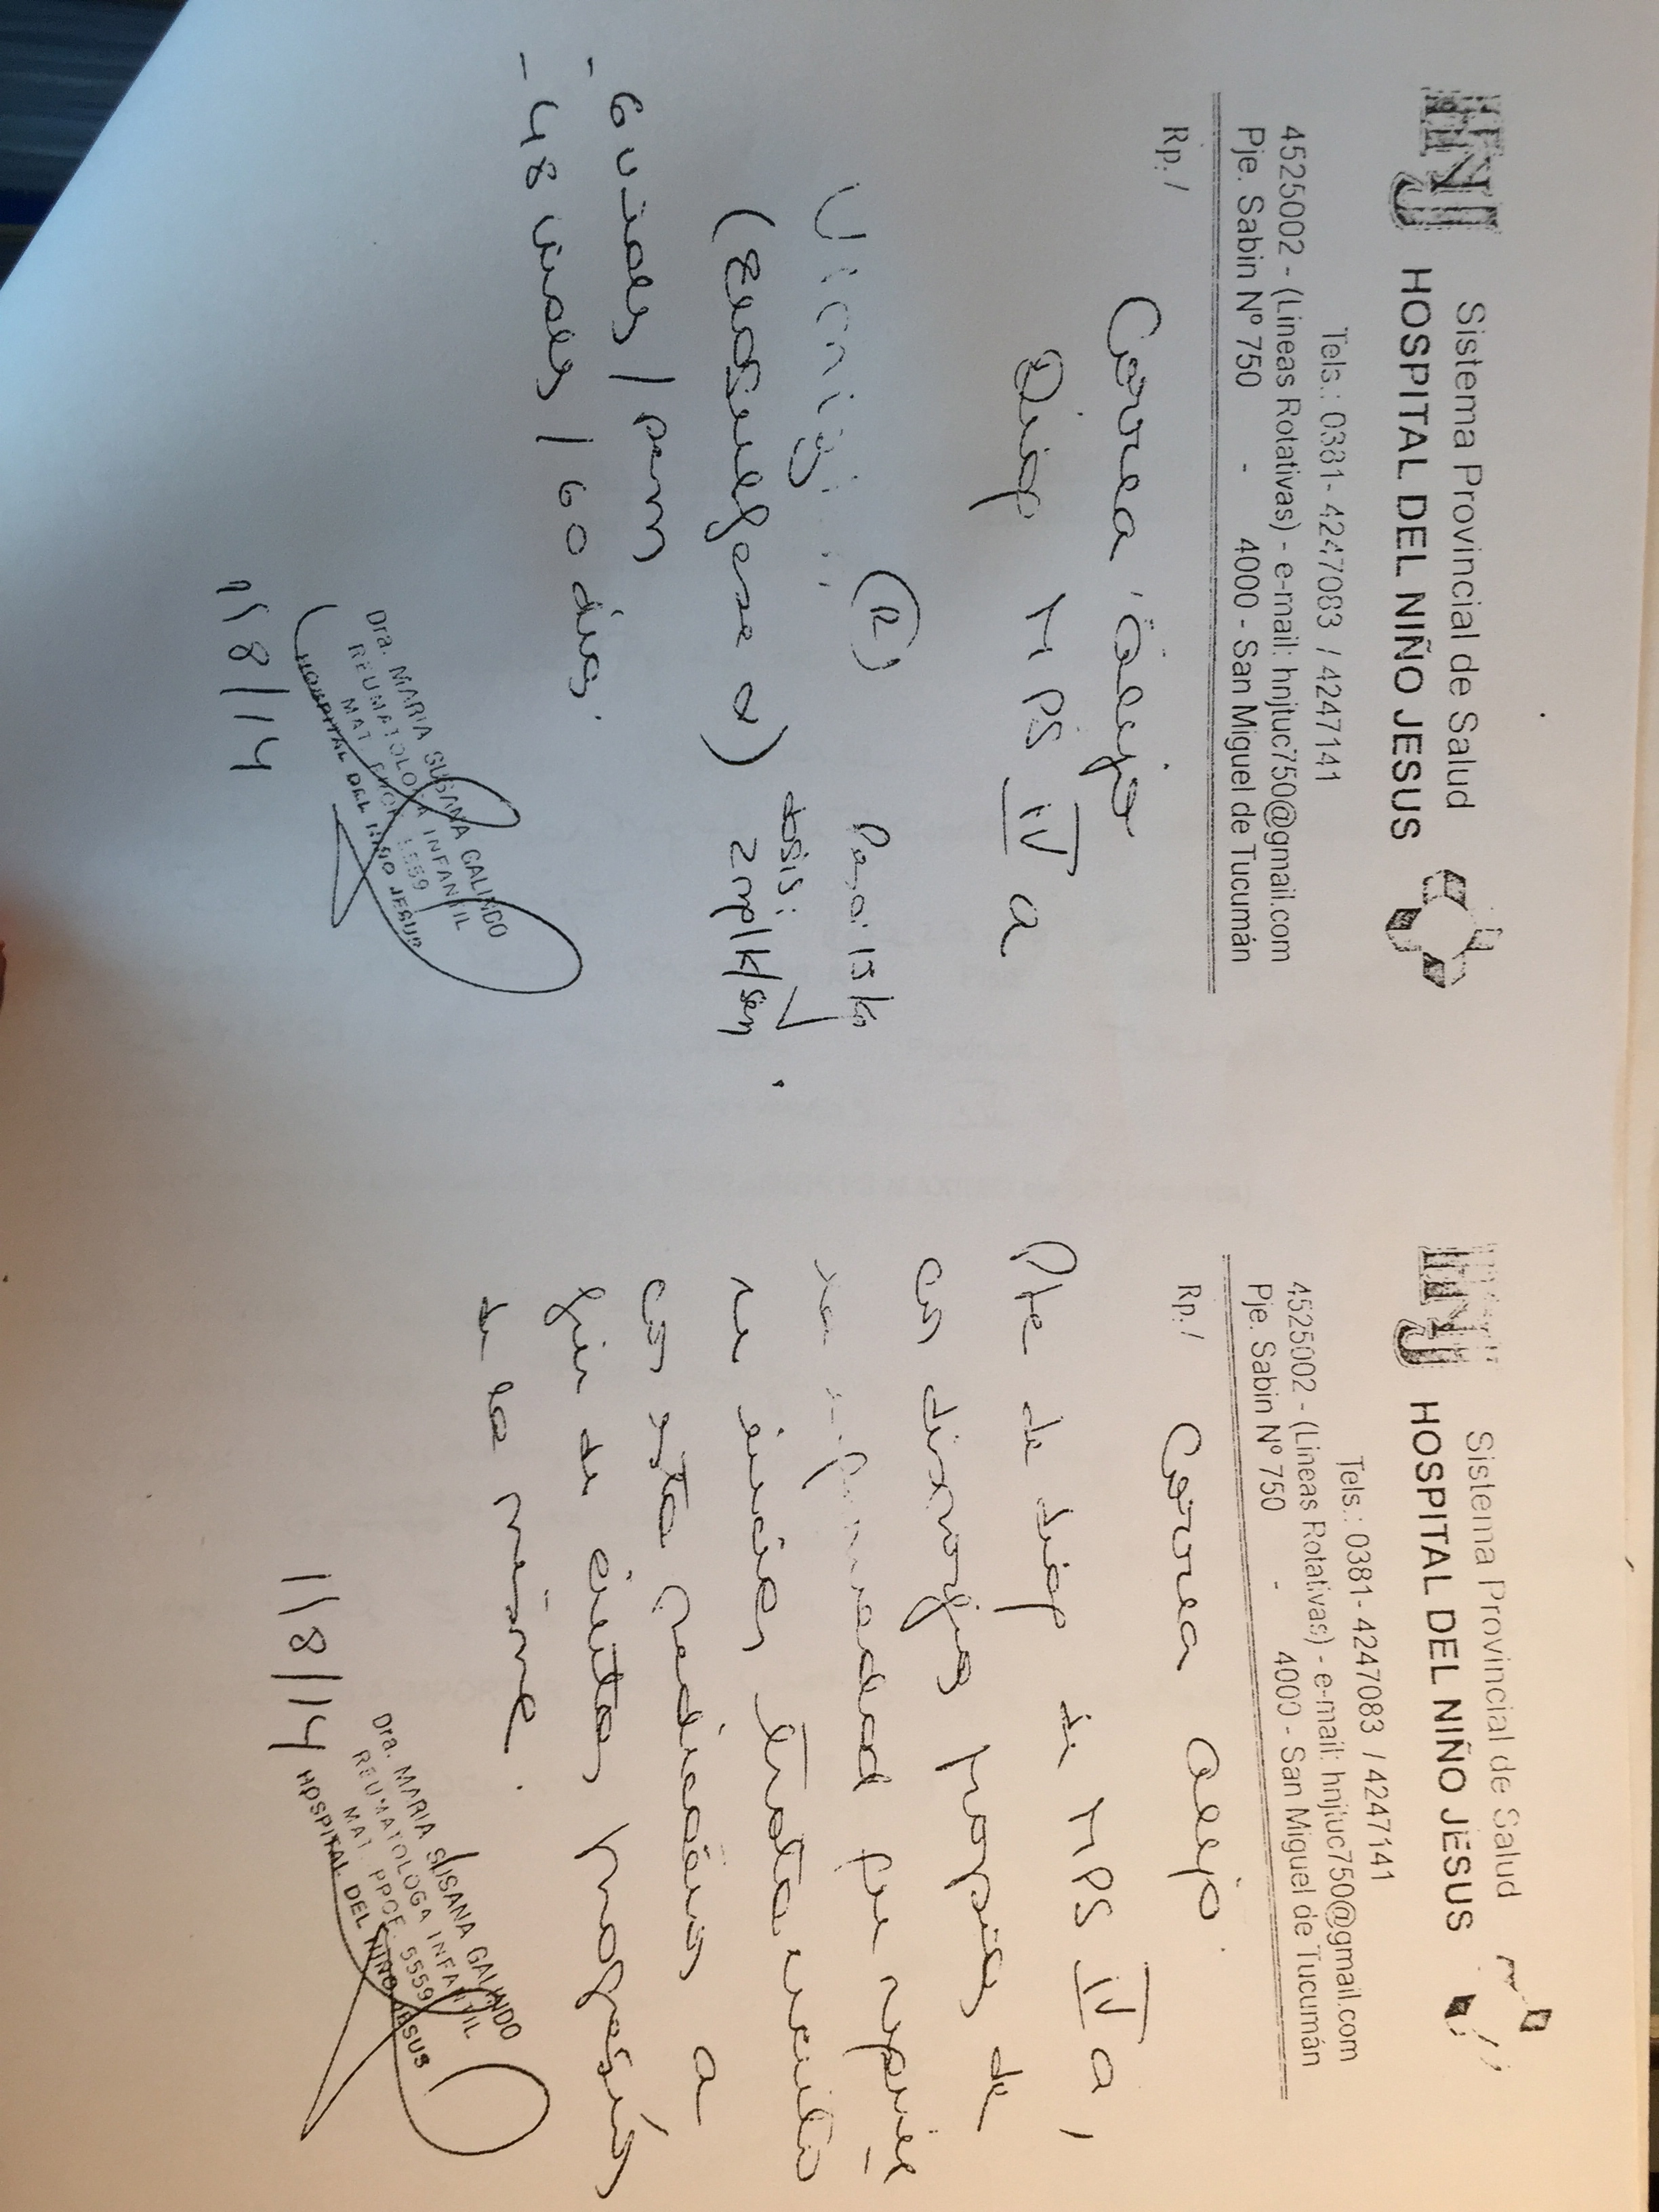 HNJ
Sistema Provincial de Salud
HOSPITAL DEL NIÑO JESUS
Tels.: 0381- 4247083 / 4247141
4525002 - (Lineas Rotativas) - e-mail: hnjtuc750@gmail.com
Pje. Sabin Nº 750 - 4000 - San Miguel de Tucumán
Rp./
Correa, Alejo
Diag MPS IV a
(R) Peso: 15 kg
(Elosulfase α) dosis: 2mg/k/sem
- 6 viales / sem
- 48 viales / 60 dias.
Dra. MARIA SUSANA GALINDO
REUMATOLOGA INFANTIL
MAT. PROF. 5559
HOSPITAL DEL NIÑO JESUS
1/8/14
HNJ
Sistema Provincial de Salud
HOSPITAL DEL NIÑO JESUS
Tels.: 0381- 4247083 / 4247141
4525002 - (Lineas Rotativas) - e-mail: hnjtuc750@gmail.com
Pje. Sabin Nº 750 - 4000 - San Miguel de Tucumán
Rp./
Correa Alejo.
Pte de diag de MPS IV a,
con dismorfias propias de
enfermedad que requiere
iniciar tratamiento
con esta medicación a
fin de evitar progresión
de la misma.
1/8/14
Dra. MARIA SUSANA GALINDO
REUMATOLOGA INFANTIL
MAT. PROF. 5559
HOSPITAL DEL NIÑO JESUS